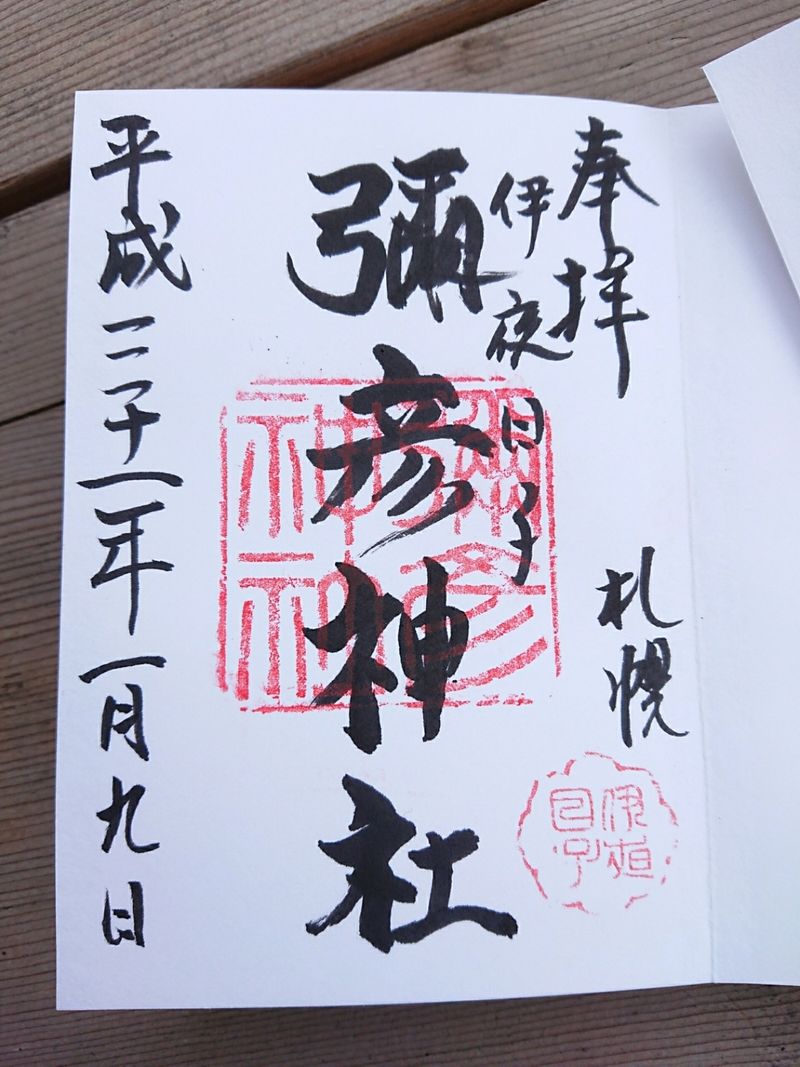 奉拝
札幌
伊夜日子
彌彦神社
平成三十一年一月九日
彌彦
神社
伊夜
日子